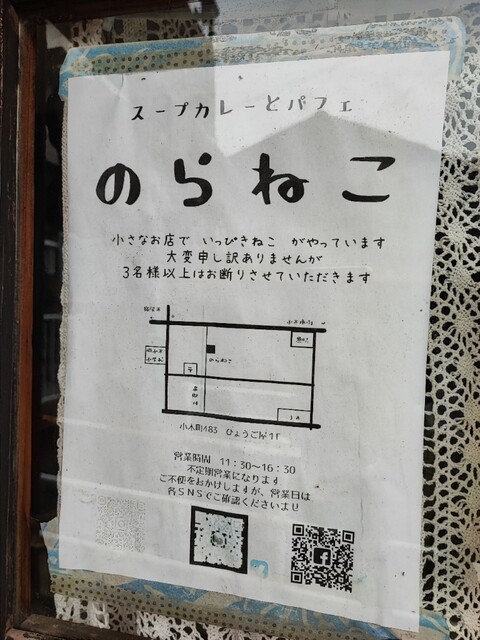 スープカレーとパフェ
のらねこ
小さなお店で いっぴきねこ がやっています
大変申し訳ありませんが
3名様以上はお断りさせていただきます
のらねこ
小木町183 ひょうご屋1F
営業時間 11:30~16:30
不定期営業になります
ご不便をおかけしますが、営業日は
各SNSでご確認くださいませ